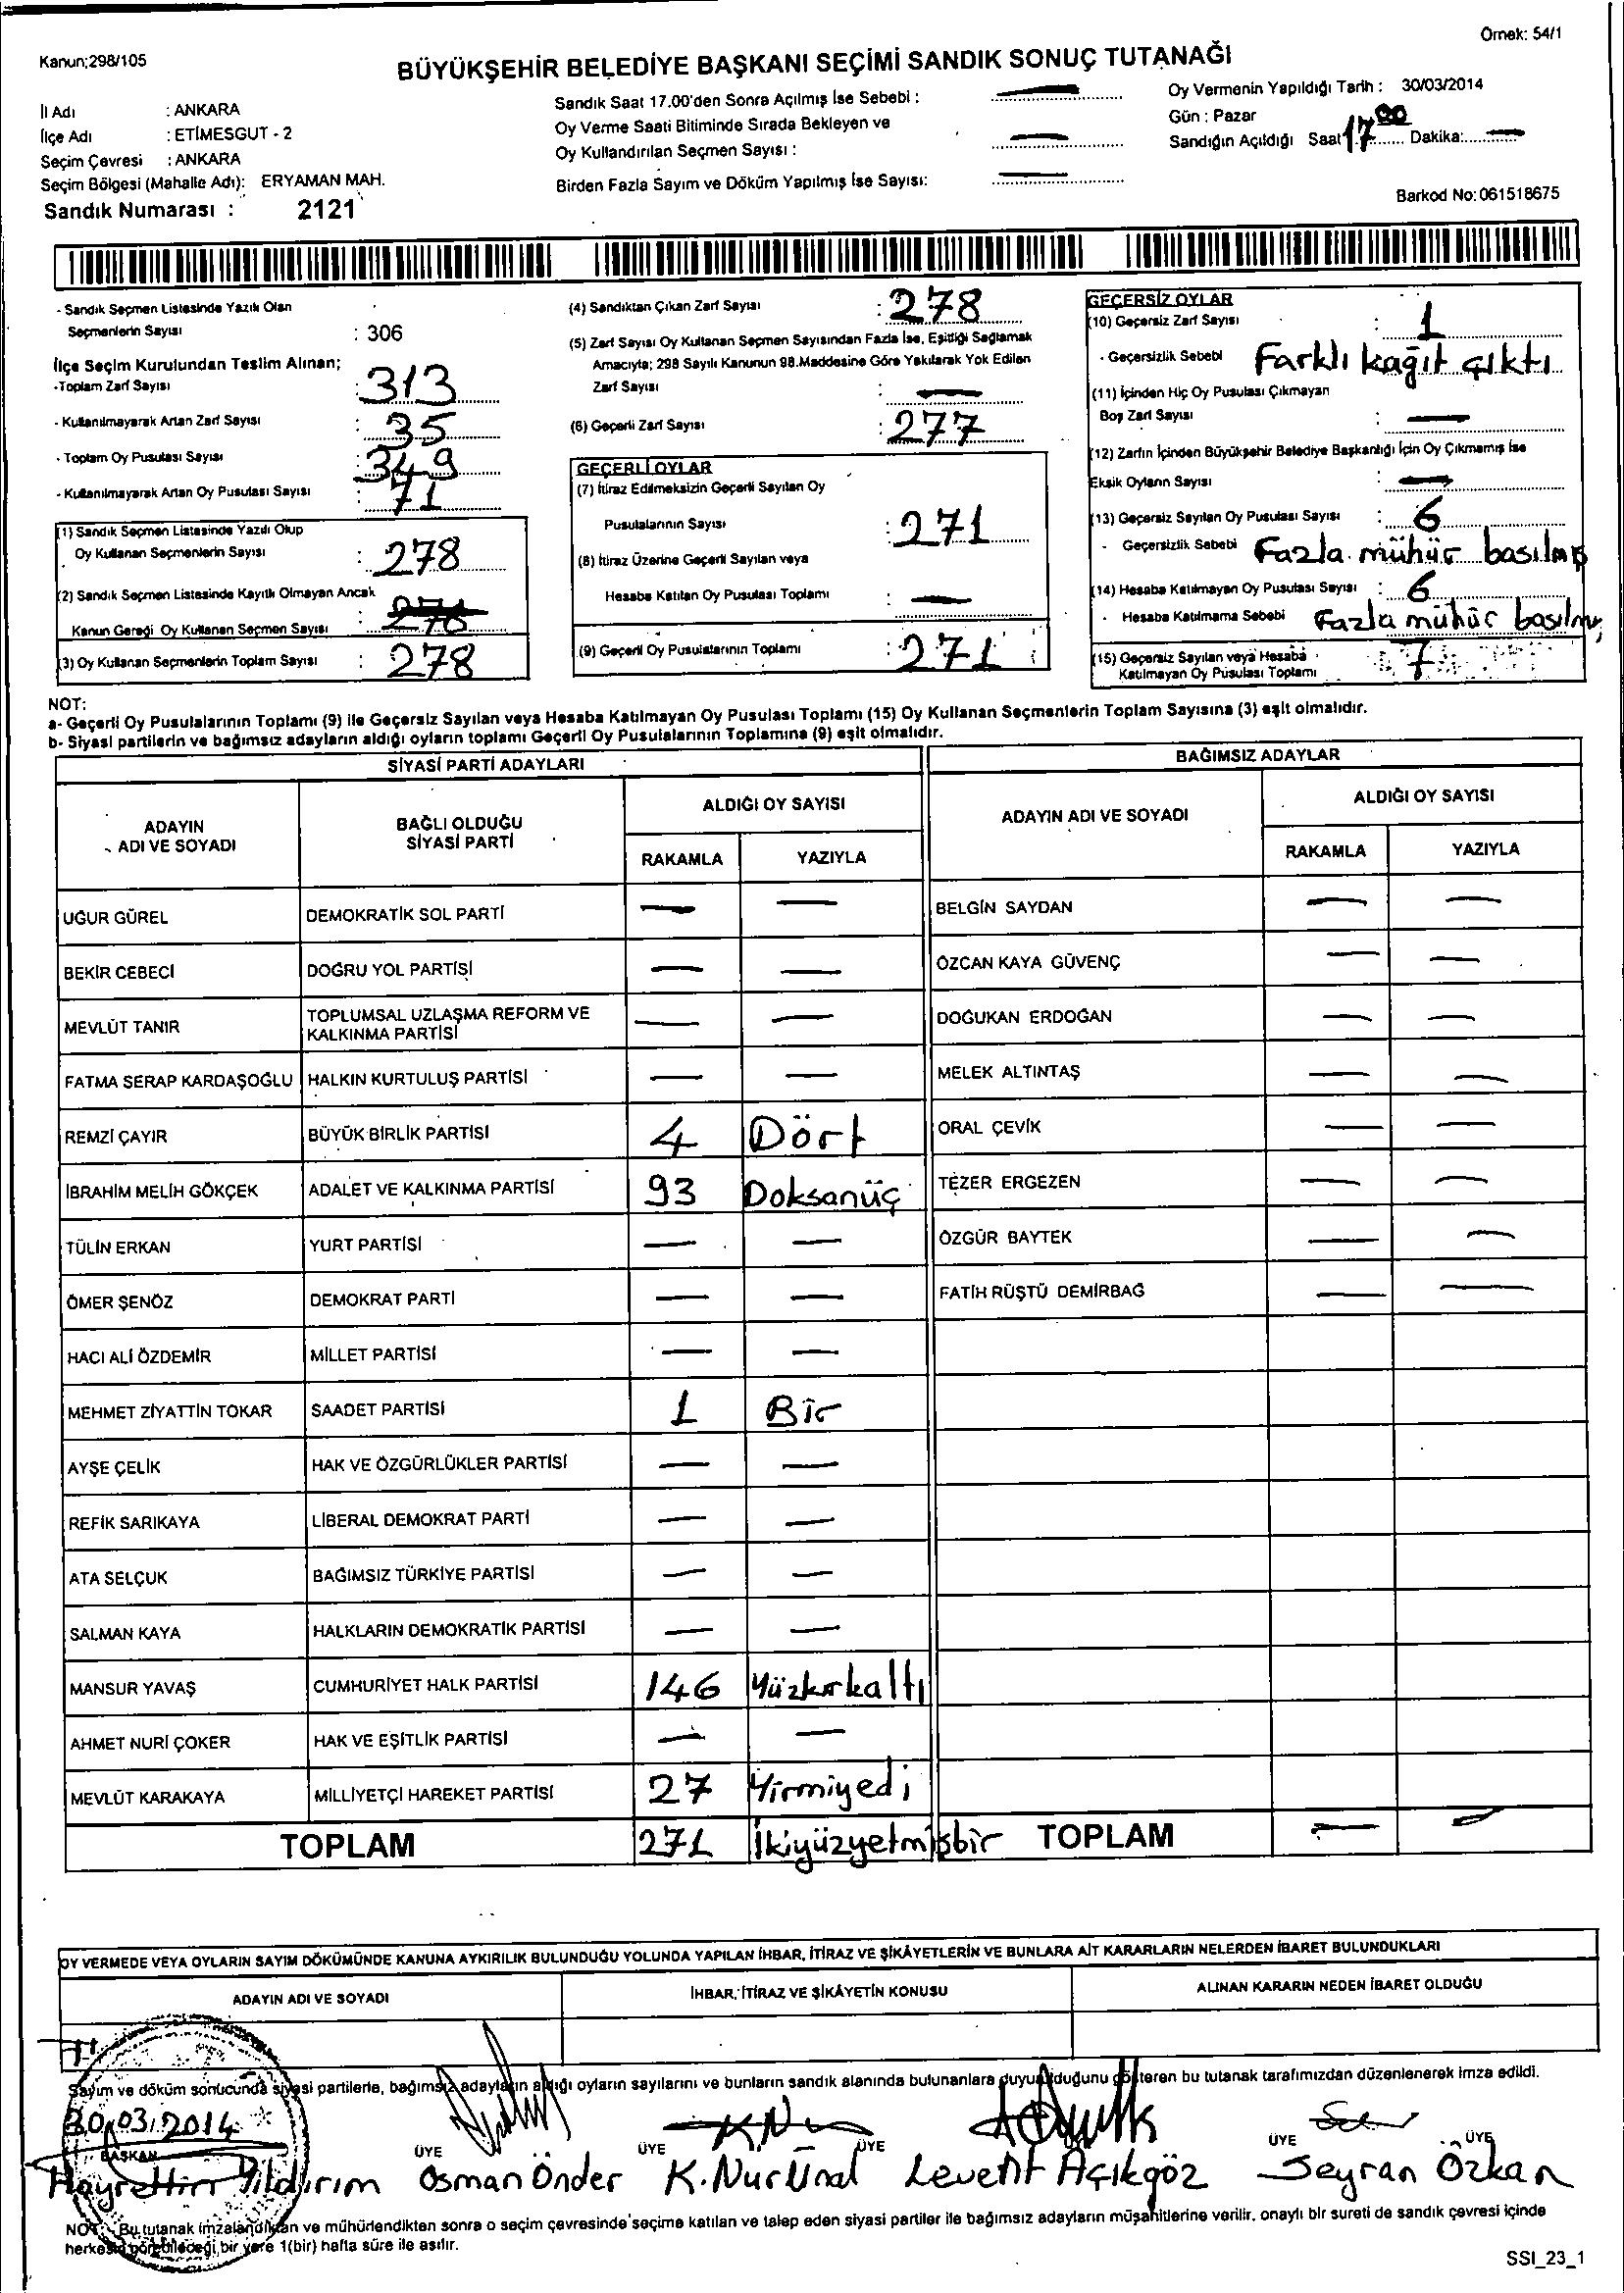 Örnek: 54/1
Kanun;298/105
BÜYÜKŞEHİR BELEDİYE BAŞKANI SEÇİMİ SANDIK SONUÇ TUTANAĞI
İl Adı : ANKARA
İlçe Adı : ETİMESGUT - 2
Seçim Çevresi : ANKARA
Seçim Bölgesi (Mahalle Adı): ERYAMAN MAH.
Sandık Numarası : 2121
Sandık Saat 17.00'den Sonra Açılmış İse Sebebi : —
Oy Verme Saati Bitiminde Sırada Bekleyen ve
Oy Kullandırılan Seçmen Sayısı : —
Birden Fazla Sayım ve Döküm Yapılmış İse Sayısı: —
Oy Vermenin Yapıldığı Tarih : 30/03/2014
Gün : Pazar
Sandığın Açıldığı Saat 17 00 Dakika: —
Barkod No:061518675
- Sandık Seçmen Listesinde Yazılı Olan
Seçmenlerin Sayısı : 306
İlçe Seçim Kurulundan Teslim Alınan;
-Toplam Zarf Sayısı : 313
- Kullanılmayarak Artan Zarf Sayısı : 35
- Toplam Oy Pusulası Sayısı : 349
- Kullanılmayarak Artan Oy Pusulası Sayısı : 71
(1) Sandık Seçmen Listesinde Yazılı Olup
Oy Kullanan Seçmenlerin Sayısı : 278
(2) Sandık Seçmen Listesinde Kayıtlı Olmayan Ancak
Kanun Gereği Oy Kullanan Seçmen Sayısı :
(3) Oy Kullanan Seçmenlerin Toplam Sayısı : 278
(4) Sandıktan Çıkan Zarf Sayısı : 278
(5) Zarf Sayısı Oy Kullanan Seçmen Sayısından Fazla İse, Eşitliği Sağlamak
Amacıyla; 298 Sayılı Kanunun 98.Maddesine Göre Yakılarak Yok Edilen
Zarf Sayısı : —
(6) Geçerli Zarf Sayısı : 277
GEÇERLİ OYLAR
(7) İtiraz Edilmeksizin Geçerli Sayılan Oy
Pusulalarının Sayısı : 271
(8) İtiraz Üzerine Geçerli Sayılan veya
Hesaba Katılan Oy Pusulası Toplamı : —
(9) Geçerli Oy Pusulalarının Toplamı : 271
GEÇERSİZ OYLAR
(10) Geçersiz Zarf Sayısı : 1
- Geçersizlik Sebebi Farklı kağıt çıktı
(11) İçinden Hiç Oy Pusulası Çıkmayan
Boş Zarf Sayısı : —
(12) Zarfın İçinden Büyükşehir Belediye Başkanlığı İçin Oy Çıkmamış İse
Eksik Oyların Sayısı : —
(13) Geçersiz Sayılan Oy Pusulası Sayısı : 6
- Geçersizlik Sebebi Fazla mühür basılmış
(14) Hesaba Katılmayan Oy Pusulası Sayısı : 6
- Hesaba Katılmama Sebebi Fazla mühür basılmış
(15) Geçersiz Sayılan veya Hesaba
Katılmayan Oy Pusulası Toplamı : 7
NOT:
a- Geçerli Oy Pusulalarının Toplamı (9) ile Geçersiz Sayılan veya Hesaba Katılmayan Oy Pusulası Toplamı (15) Oy Kullanan Seçmenlerin Toplam Sayısına (3) eşit olmalıdır.
b- Siyasi partilerin ve bağımsız adayların aldığı oyların toplamı Geçerli Oy Pusulalarının Toplamına (9) eşit olmalıdır.
SİYASİ PARTİ ADAYLARI
ADAYIN
ADI VE SOYADI
BAĞLI OLDUĞU
SİYASİ PARTİ
ALDIĞI OY SAYISI
RAKAMLA YAZIYLA
UĞUR GÜREL DEMOKRATİK SOL PARTİ — —
BEKİR CEBECİ DOĞRU YOL PARTİSİ — —
MEVLÜT TANIR TOPLUMSAL UZLAŞMA REFORM VE
KALKINMA PARTİSİ — —
FATMA SERAP KARDAŞOĞLU HALKIN KURTULUŞ PARTİSİ — —
REMZİ ÇAYIR BÜYÜK BİRLİK PARTİSİ 4 Dört
İBRAHİM MELİH GÖKÇEK ADALET VE KALKINMA PARTİSİ 93 Doksanüç
TÜLİN ERKAN YURT PARTİSİ — —
ÖMER ŞENÖZ DEMOKRAT PARTİ — —
HACI ALİ ÖZDEMİR MİLLET PARTİSİ — —
MEHMET ZİYATTİN TOKAR SAADET PARTİSİ 1 Bir
AYŞE ÇELİK HAK VE ÖZGÜRLÜKLER PARTİSİ — —
REFİK SARIKAYA LİBERAL DEMOKRAT PARTİ — —
ATA SELÇUK BAĞIMSIZ TÜRKİYE PARTİSİ — —
SALMAN KAYA HALKLARIN DEMOKRATİK PARTİSİ — —
MANSUR YAVAŞ CUMHURİYET HALK PARTİSİ 146 Yüzkırkaltı
AHMET NURİ ÇOKER HAK VE EŞİTLİK PARTİSİ — —
MEVLÜT KARAKAYA MİLLİYETÇİ HAREKET PARTİSİ 27 Yirmiyedi
TOPLAM 271 İkiyüzyetmişbir
BAĞIMSIZ ADAYLAR
ADAYIN ADI VE SOYADI
ALDIĞI OY SAYISI
RAKAMLA YAZIYLA
BELGİN SAYDAN — —
ÖZCAN KAYA GÜVENÇ — —
DOĞUKAN ERDOĞAN — —
MELEK ALTINTAŞ — —
ORAL ÇEVİK — —
TEZER ERGEZEN — —
ÖZGÜR BAYTEK — —
FATİH RÜŞTÜ DEMİRBAĞ — —
TOPLAM — —
OY VERMEDE VEYA OYLARIN SAYIM DÖKÜMÜNDE KANUNA AYKIRILIK BULUNDUĞU YOLUNDA YAPILAN İHBAR, İTİRAZ VE ŞİKÂYETLERİN VE BUNLARA AİT KARARLARIN NELERDEN İBARET BULUNDUKLARI
ADAYIN ADI VE SOYADI İHBAR, İTİRAZ VE ŞİKÂYETİN KONUSU ALINAN KARARIN NEDEN İBARET OLDUĞU
Sayım ve döküm sonucunda siyasi partilerle, bağımsız adayların aldığı oyların sayılarını ve bunların sandık alanında bulunanlara duyurulduğunu gösteren bu tutanak tarafımızdan düzenlenerek imza edildi.
30.03.2014
BAŞKAN ÜYE ÜYE ÜYE ÜYE ÜYE
Hayrettin Yıldırım Osman Önder K.Nur Ünal Levent Açıkgöz Seyran Özkan
NOT: Bu tutanak imzalandıktan ve mühürlendikten sonra o seçim çevresinde seçime katılan ve talep eden siyasi partiler ile bağımsız adayların müşahitlerine verilir, onaylı bir sureti de sandık çevresi içinde
herkesin görebileceği bir yere 1(bir) hafta süre ile asılır.
SSI_23_1